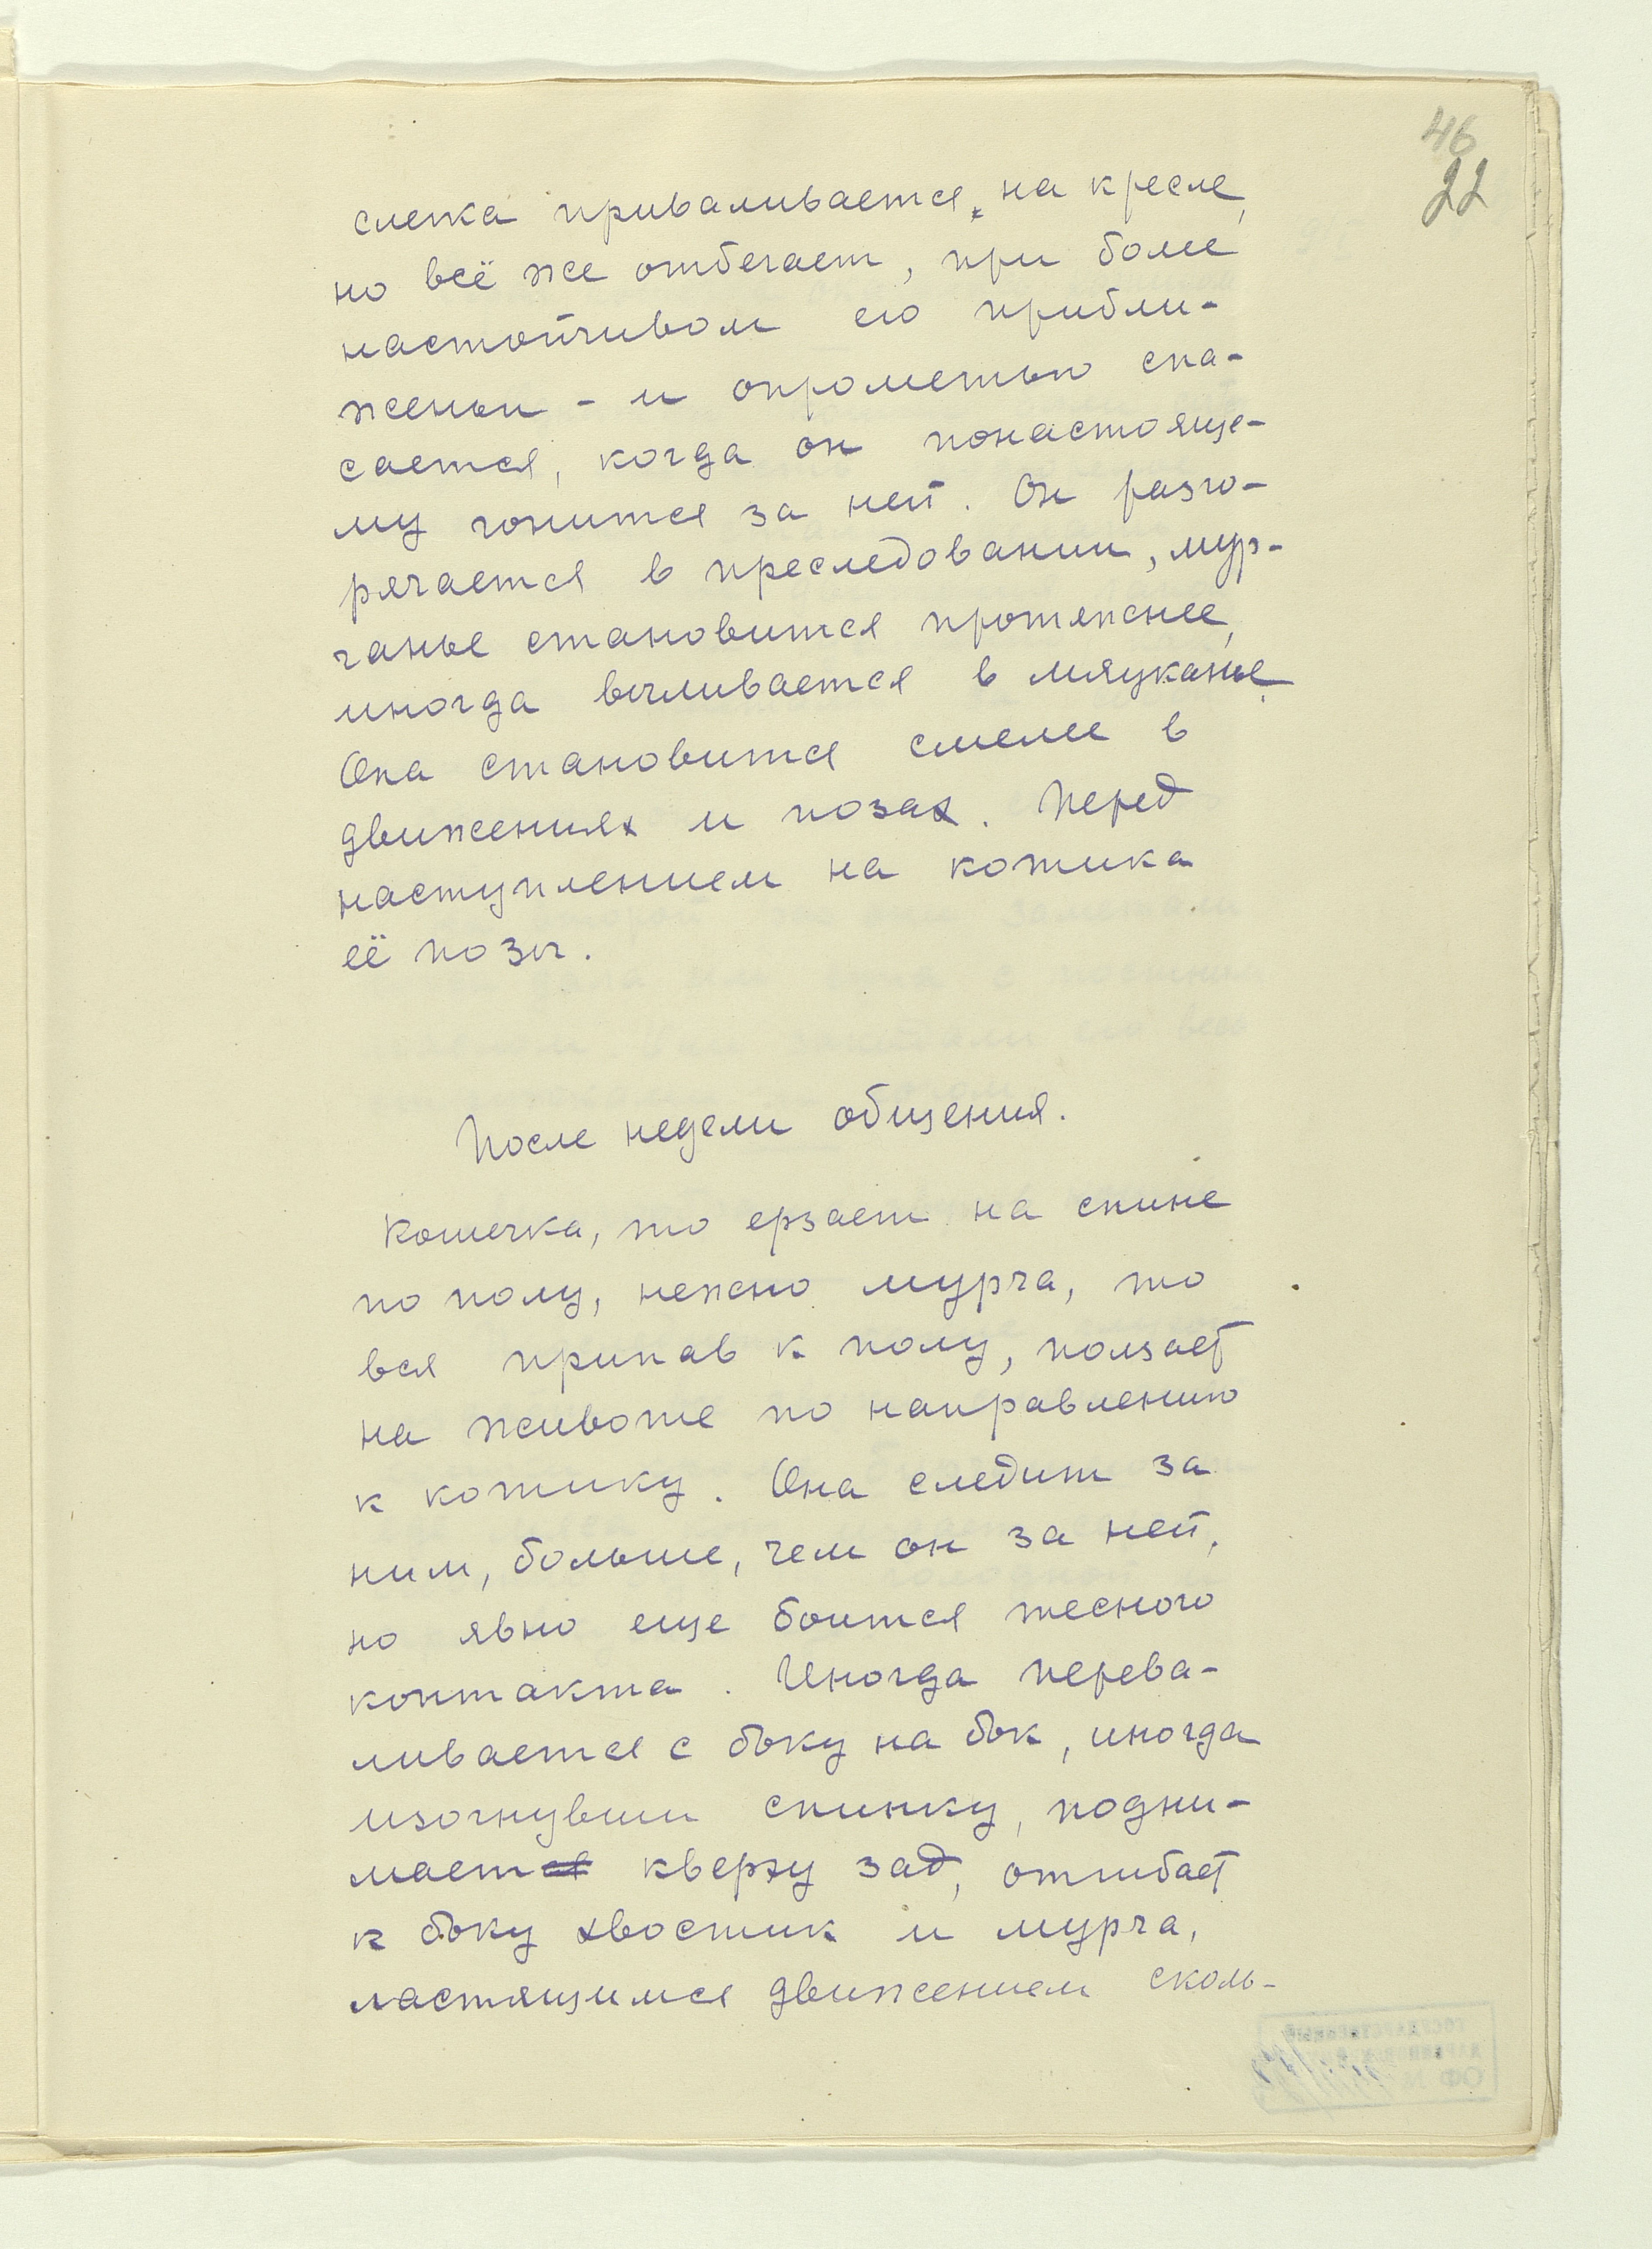 46
22
слегка приваливается на кресле,
но всё же отбегает, при более
настойчивом его прибли-
женьи - и опрометью спа-
сается, когда он понастояще-
му гонится за ней. Он разго-
рячается в преследовании, мур-
чанье становится протяжнее,
иногда выливается в мяуканье.
Она становится смелее в
движениях и позах. Перед
наступлением на котика
её позы.
После недели общения.
Кошечка, то ерзает на спине
по полу, нежно мурча, то
вся припав к полу, ползает
на животе по направлению
к котику. Она следит за
ним, больше, чем он за ней,
но явно еще боится тесного
контакта. Иногда перева-
ливается с боку на бок, иногда
изогнувши спинку, подни-
мает кверху зад, отгибает
к боку хвостик и мурча,
ластящимся движением сколь-